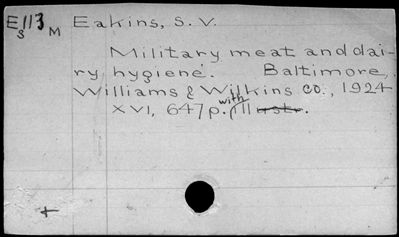 E113 M Eakins, S. V.
3
Military meat and dai-
ry hygiene. Baltimore,
Williams & Wilkins co., 1924
XVI, 647 p. with illustr.